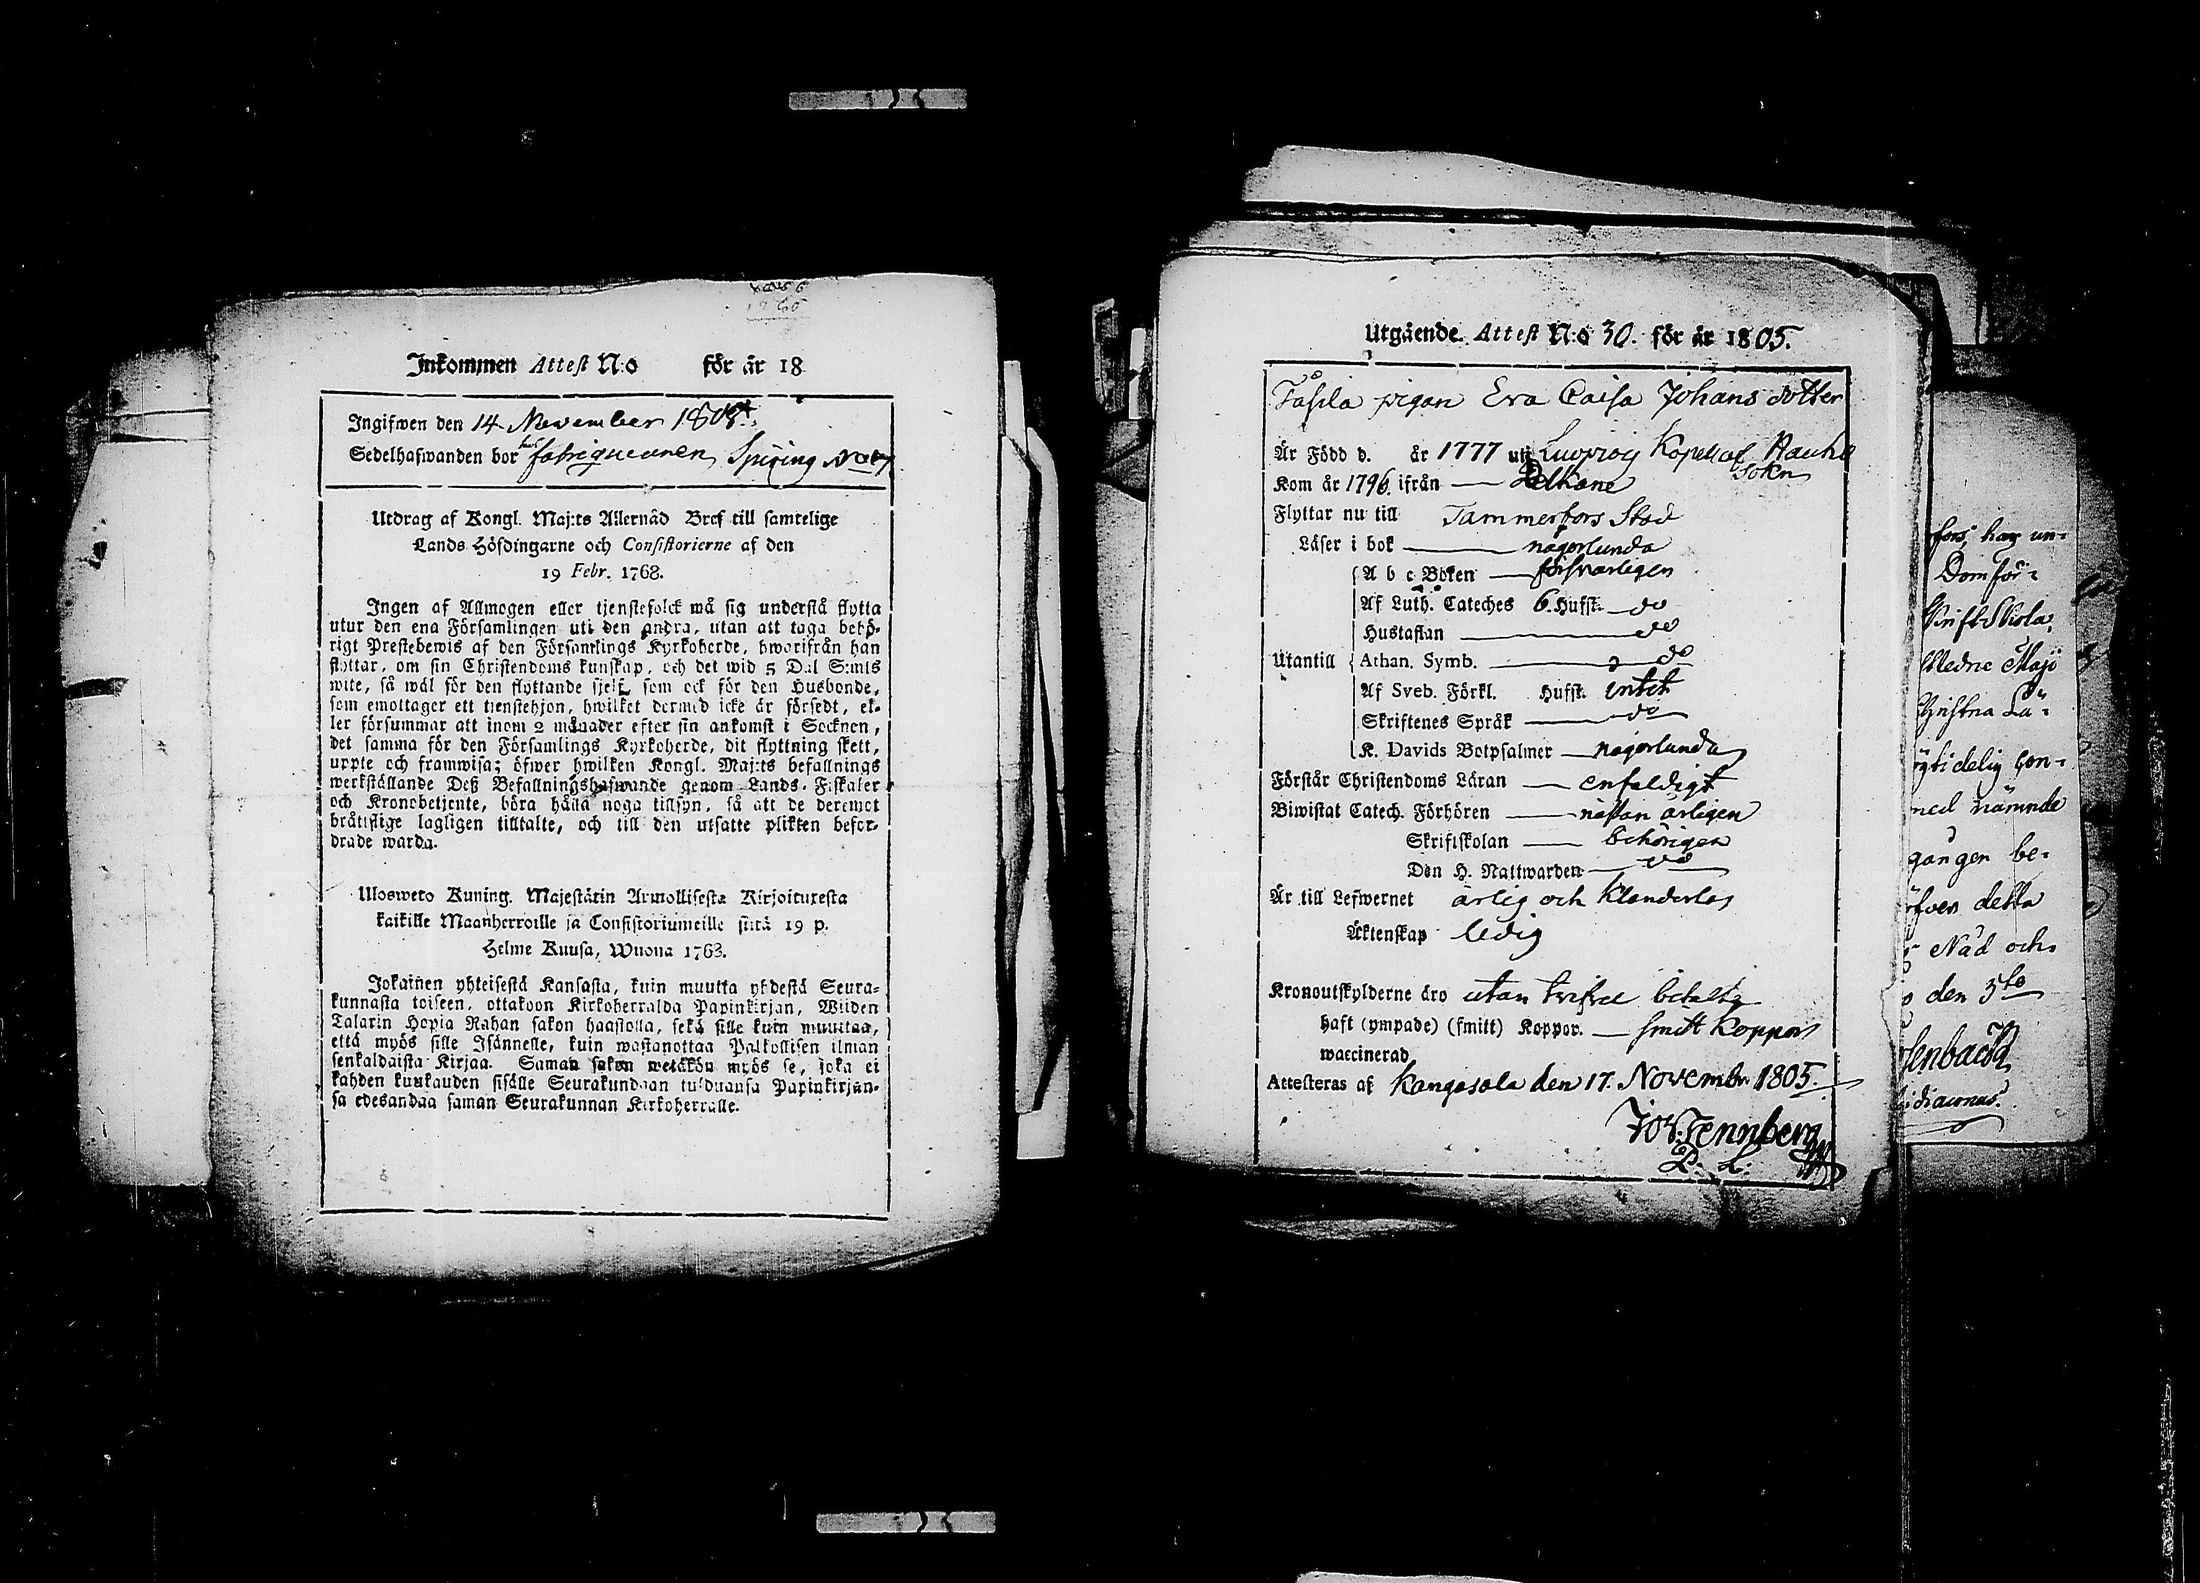 Inkommen Attest N:o för år 18
Ingifwen den 14 November 1805.
Sedelhafwanden bor hos fabriqueuren Spiring
Utdrag af Kongl. Maj:ts Allernåd Bref till samtelige
Lands Höfdingarne och Consistorierne af den
19 Febr. 1768.
Ingen af Allmogen eller tjenstefolck må sig understå flytta
utur den ena Församlingen uti den andra, utan att taga behö-
rigt Prestebewis af den Församlings Kyrkoherde, hworifrån han
flyttar, om sin Christendoms kunskap, och det wid 5 Dal S:mts
wite, så wäl för den flyttande sjelf, som ock för den Husbonde,
som emottager ett tjenstehjon, hwilket dermed icke är försedt, el-
ler försummar att inom 2 månader efter sin ankomst i Socknen,
det samma för den Församlings Kyrkoherde, dit flyttning skett,
uppte och framwisa; öfwer hwilken Kongl. Maj:ts befallnings
werkställande Deß Befallningshafwande genom Lands-Fiskaler
och Kronobetjente, böra hålla noga tillsyn, så att de deremot
bråttslige lagligen tilltalte, och till den utsatte plikten befor-
drade warda.
Uloswето Kuning. Majestätin Armollisesta Kirjoituxesta
kaikille Maanherroille ja Consistoriumeille siitä 19 p.
Helme Kuusa, Wuona 1768.
Jokainen yhteisestä Kansasta, kuin muutta yhdestä Seura-
kunnasta toiseen, ottakoon Kirkoherralda Papinkirjan, Wiiden
Talarin Hopia Rahan sakon haastolla, sekä sille kuin muuttaa,
että myös sille Isännelle, kuin wastanottaa Palkollisen ilman
senkaldaista Kirjaa. Saman sakon wetäkön myös se, joka ei
kahden kuukauden sisälle Seurakundaan tulduansa Papinkirjan-
sa edesandaa saman Seurakunnan Kirkoherralle.
Utgående Attest N:o 30. för år 1805.
Tåsila pigan Eva Caisa Johans dotter
Är Född d. år 1777 uti Kapell af Rauhc
Sokn
Kom år 1796. ifrån — Pelkäne
Flyttar nu till Tammerfors Stad
Läser i bok — någorlunda
A b c Boken — försvarligen
Af Luth. Cateches 6. Hufst. — do
Hustaflan — do
Utantill Athan. Symb. — do
Af Sveb. Förkl. Hufst. intet
Skriftenes Språk — do
K. Davids Botpsalmer — någorlunda
Förstår Christendoms Läran — enfaldigt
Biwistat Catech. Förhören — nästan årligen
Skriftskolan — behörigen
Den H. Nattwarden — do
Är till Lefwernet ärlig och klanderlös
Äktenskap ledig
Kronoutskylderne äro utan tvifvel betalta
haft (ympade) (smitt) Koppor. — smitt koppor
waccinerad
Attesteras af Kangasala den 17. November 1805.
Joh: Tennberg
P. L.
fors, har un-
Domför-
Christna Lä-
med nämnde
gången be-
detta
Nåd och
den 5te